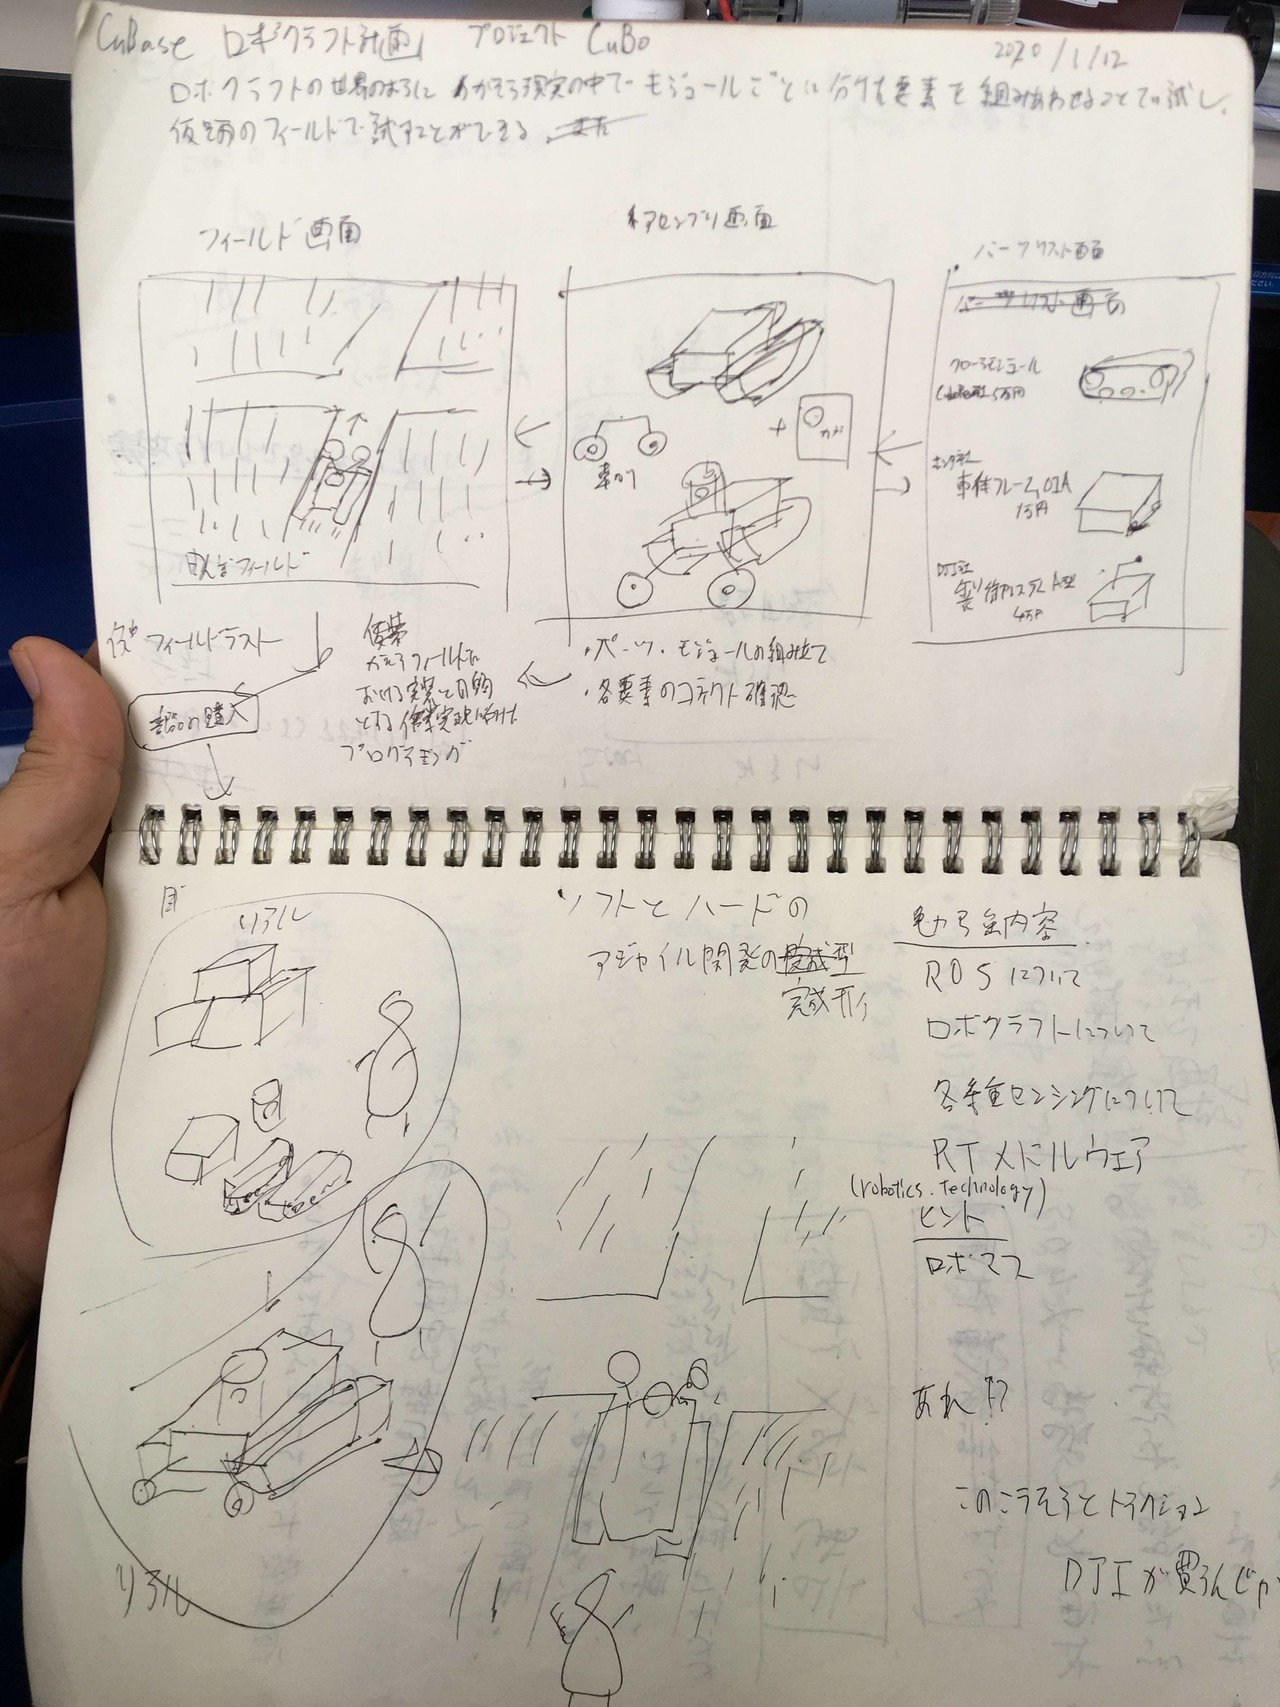 CuBase ロボクラフト計画 プロジェクト CuBo
2020/1/12
ロボクラフトの世界のように 仮想現実の中で モジュールごとに 分けた要素を 組みあわせることで試し、
仮想のフィールドで試すことができる。
フィールド画面
アセンブリ画面
パーツリスト画面
パーツリスト画面
クローラモジュール
5万円
車体フレーム01A
1万円
DJI社
4万円
+
カメラ
車輪
田んぼフィールド
フィールドテスト
部品の購入
フィールドに
おける
とする作業実現に向けた
プログラミング
・パーツ・モジュールの組み立て
・各要素のコネクト確認
リアル
リアル
ソフトとハードの
アジャイル開発の完成型
完成形
勉強内容
ROSについて
ロボクラフトについて
各種センシングについて
RTミドルウェア
(robotics.technology)
ヒント
ロボマス
あれ!?
トラクション
DJIが買うんじゃ